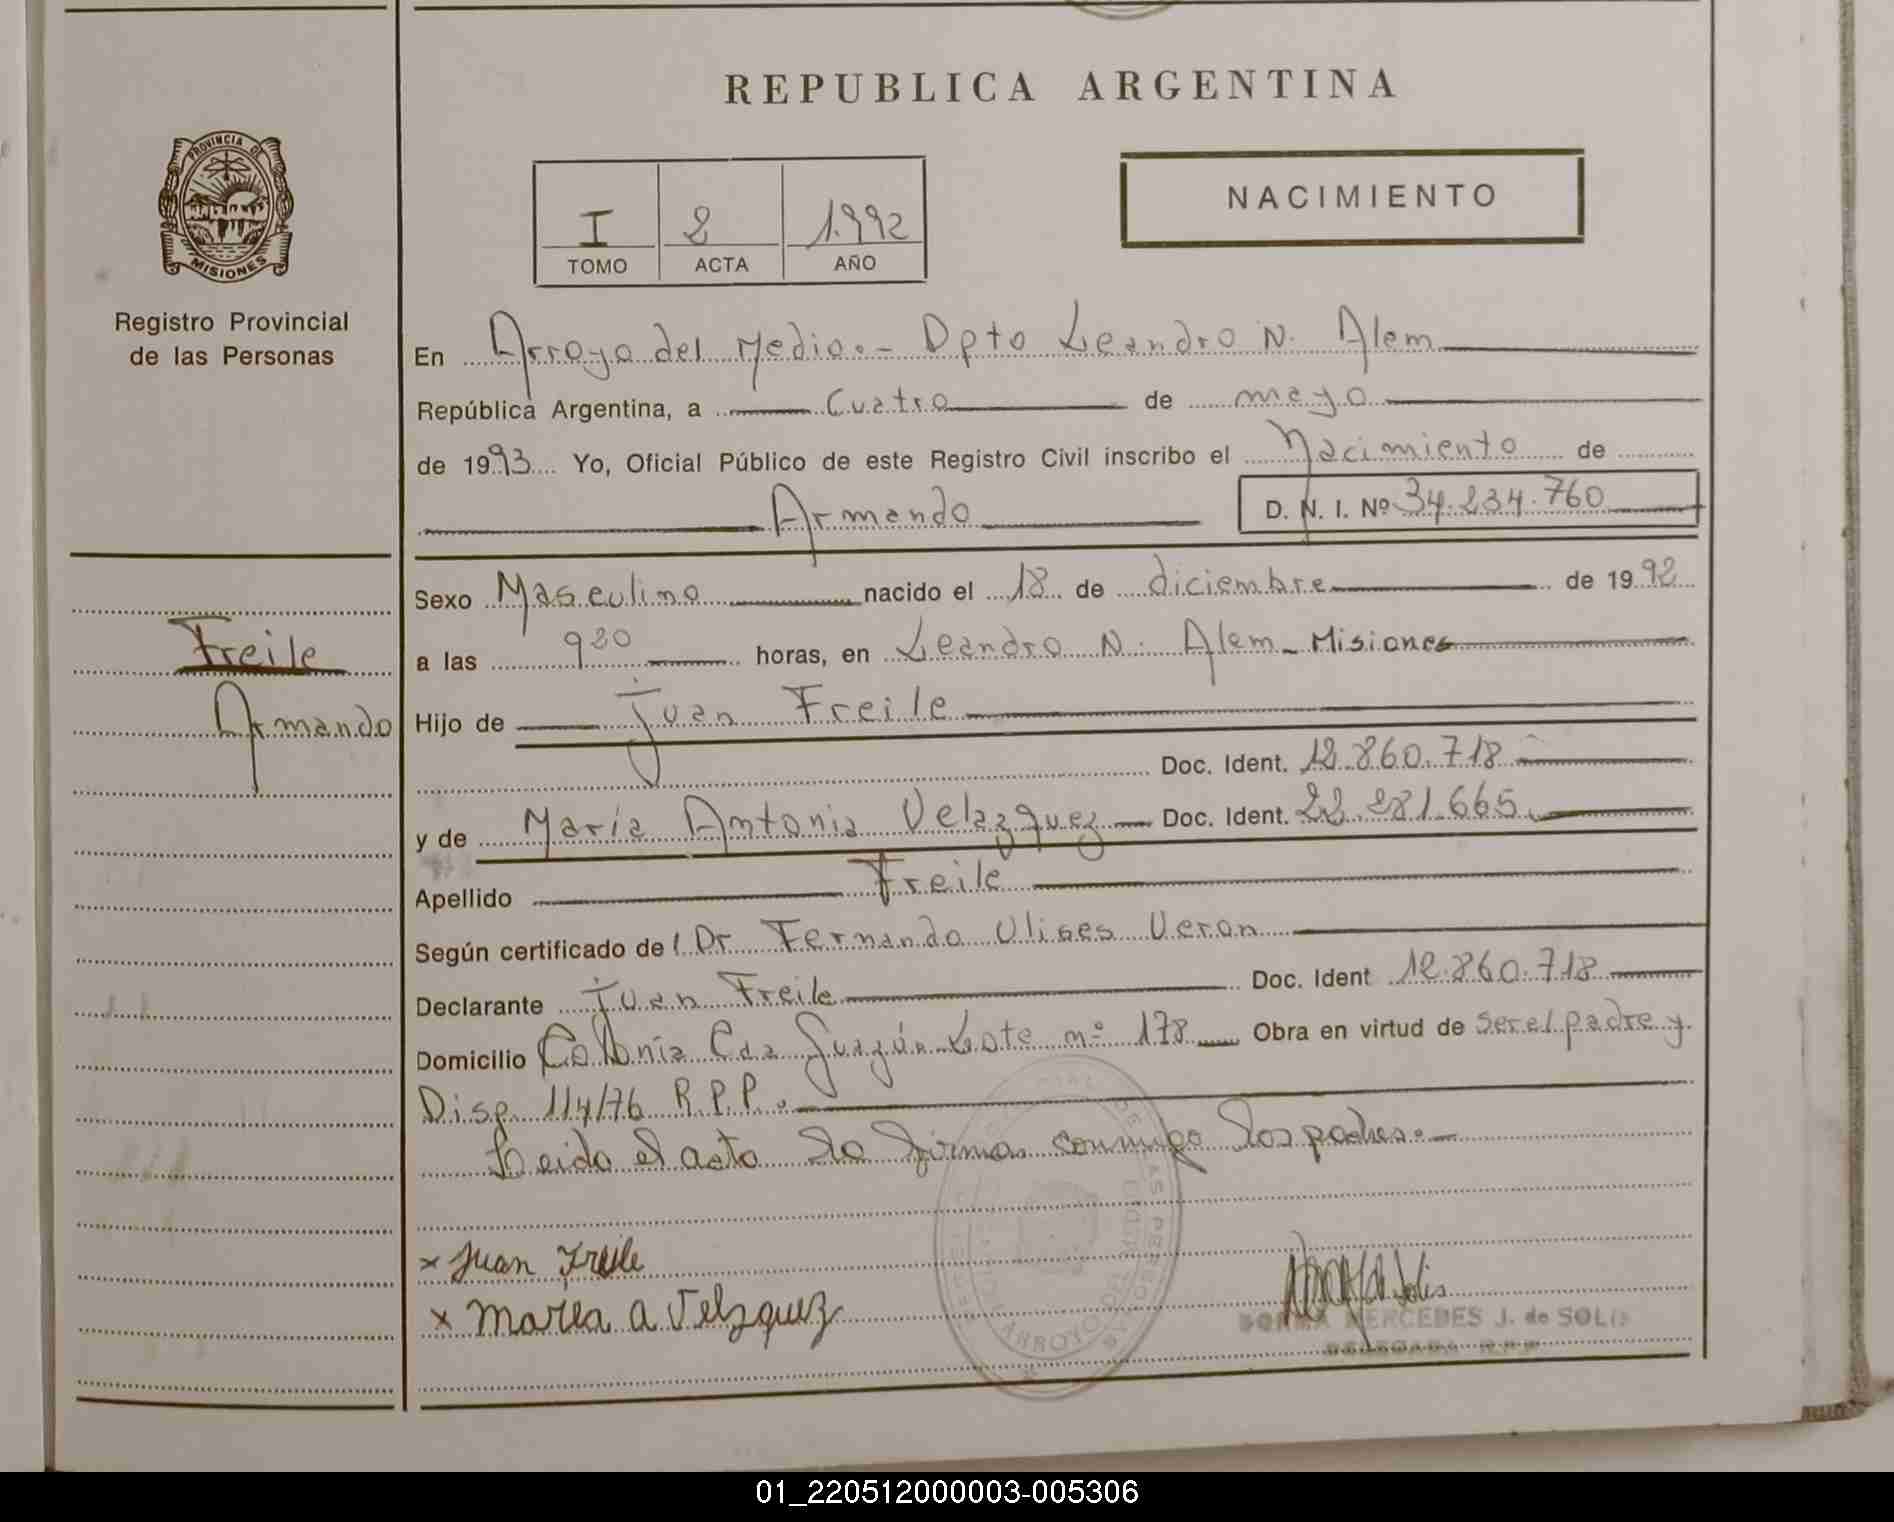 REPUBLICA ARGENTINA
PROVINCIA DE
MISIONES
Registro Provincial
de las Personas
I 2 1992
TOMO ACTA AÑO
NACIMIENTO
En Arroyo del Medio.- Dpto Leandro N. Alem
República Argentina, a cuatro de mayo
de 1993 Yo, Oficial Público de este Registro Civil inscribo el Nacimiento de
Armando D. N. I. Nº 34.234.760
Freile
Armando
Sexo Masculino nacido el 18 de diciembre de 1992
a las 920 horas, en Leandro N. Alem - Misiones
Hijo de Juan Freile
Doc. Ident. 12.860.718
y de María Antonia Velazquez Doc. Ident. 22.281.665
Apellido Freile
Según certificado de l Dr Fernando Ulises Veron
Declarante Juan Freile Doc. Ident 12.860.718
Domicilio Colonia Caa Guazú Lote nº 178 Obra en virtud de ser el padre y
Disp. 114/76 R.P.P.
Leida el acta la firman conmigo los padres.-
x Juan Freile
x Maria A Velzquez
NORMA MERCEDES J. de SOLIS
DELEGADA R.P.P.
01_220512000003-005306